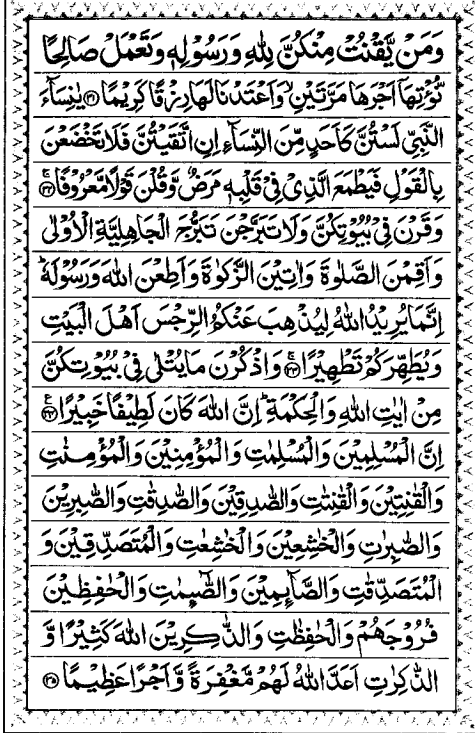 وَمَنۡ يَّقۡنُتۡ مِنۡكُنَّ لِلّٰهِ وَرَسُوۡلِهٖ وَتَعۡمَلۡ صَالِحًا
نُّؤۡتِهَاۤ اَجۡرَهَا مَرَّتَيۡنِۙ وَاَعۡتَدۡنَا لَهَا رِزۡقًا كَرِيۡمًا ﴿۳۱﴾ يٰنِسَآءَ
النَّبِىِّ لَسۡتُنَّ كَاَحَدٍ مِّنَ النِّسَآءِ اِنِ اتَّقَيۡتُنَّ فَلَا تَخۡضَعۡنَ
بِالۡقَوۡلِ فَيَطۡمَعَ الَّذِىۡ فِىۡ قَلۡبِهٖ مَرَضٌ وَّقُلۡنَ قَوۡلًا مَّعۡرُوۡفًا ﴿۳۲﴾
وَقَرۡنَ فِىۡ بُيُوۡتِكُنَّ وَلَا تَبَرَّجۡنَ تَبَرُّجَ الۡجَاهِلِيَّةِ الۡاُوۡلٰى
وَاَقِمۡنَ الصَّلٰوةَ وَاٰتِيۡنَ الزَّكٰوةَ وَاَطِعۡنَ اللّٰهَ وَرَسُوۡلَهٗ ؕ
اِنَّمَا يُرِيۡدُ اللّٰهُ لِيُذۡهِبَ عَنۡكُمُ الرِّجۡسَ اَهۡلَ الۡبَيۡتِ
وَيُطَهِّرَكُمۡ تَطۡهِيۡرًا ﴿۳۳﴾ وَاذۡكُرۡنَ مَا يُتۡلٰى فِىۡ بُيُوۡتِكُنَّ
مِنۡ اٰيٰتِ اللّٰهِ وَالۡحِكۡمَةِ ؕ اِنَّ اللّٰهَ كَانَ لَطِيۡفًا خَبِيۡرًا ﴿۳۴﴾ ع
اِنَّ الۡمُسۡلِمِيۡنَ وَالۡمُسۡلِمٰتِ وَالۡمُؤۡمِنِيۡنَ وَالۡمُؤۡمِنٰتِ
وَالۡقٰنِتِيۡنَ وَالۡقٰنِتٰتِ وَالصّٰدِقِيۡنَ وَالصّٰدِقٰتِ وَالصّٰبِرِيۡنَ
وَالصّٰبِرٰتِ وَالۡخٰشِعِيۡنَ وَالۡخٰشِعٰتِ وَالۡمُتَصَدِّقِيۡنَ وَ
الۡمُتَصَدِّقٰتِ وَالصَّآئِمِيۡنَ وَالصّٰٓئِمٰتِ وَالۡحٰفِظِيۡنَ
فُرُوۡجَهُمۡ وَالۡحٰفِظٰتِ وَالذّٰكِرِيۡنَ اللّٰهَ كَثِيۡرًا وَّ
الذّٰكِرٰتِ اَعَدَّ اللّٰهُ لَهُمۡ مَّغۡفِرَةً وَّاَجۡرًا عَظِيۡمًا ﴿۳۵﴾